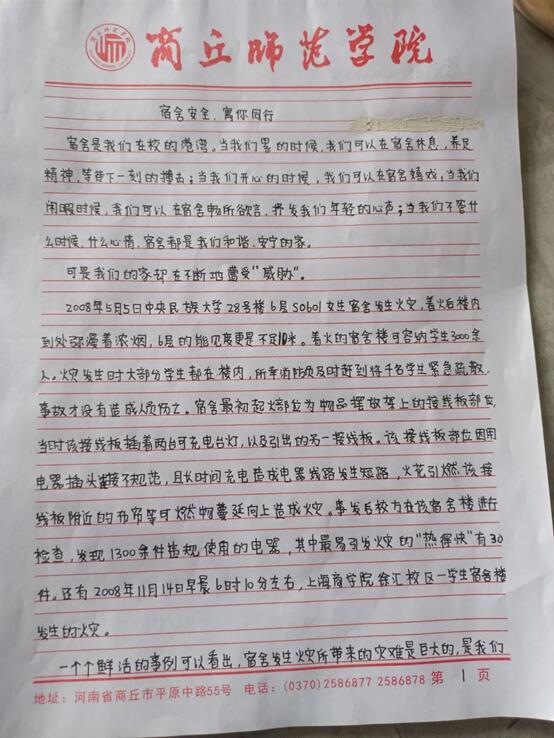 商丘师范学院
宿舍安全,寓你同行
宿舍是我们在校的港湾。当我们累的时候,我们可以在宿舍休息,养足
精神,等待下一刻的搏击;当我们开心的时候,我们可以在宿舍嬉戏;当我们
闲暇时候,我们可以在宿舍畅所欲言,抒发我们年轻的心声;当我们不管什
么时候,什么心情,宿舍都是我们和谐、安宁的家。
可是我们的家却在不断地遭受"威胁"。
2008年5月5日中央民族大学28号楼6层S0601女生宿舍发生火灾,着火后楼内
到处弥漫着浓烟,6层的能见度更是不足10米。着火的宿舍楼可容纳学生3000余
人。火灾发生时大部分学生都在楼内,所幸消防员及时赶到将千名学生紧急疏散,
事故才没有造成人员伤亡。宿舍最初起火部位为物品摆放架上的接线板部位,
当时该接线板插着两台可充电台灯,以及引出的另一接线板。该接线板部位因用
电器插头连接不规范,且长时间充电造成电器线路发生短路,火花引燃该接
线板附近的布帘等可燃物蔓延向上造成火灾。事发后校方在该宿舍楼进行
检查,发现1300余件违规使用的电器,其中最易引发火灾的"热得快"有30
件。还有2008年11月14日早晨6时10分左右,上海商学院徐汇校区一学生宿舍楼
发生的火灾。
一个个鲜活的事例可以看出,宿舍发生火灾所带来的灾难是巨大的,是我们
地址:河南省商丘市平原中路55号 电话:(0370)2586877 2586878 第 1 页